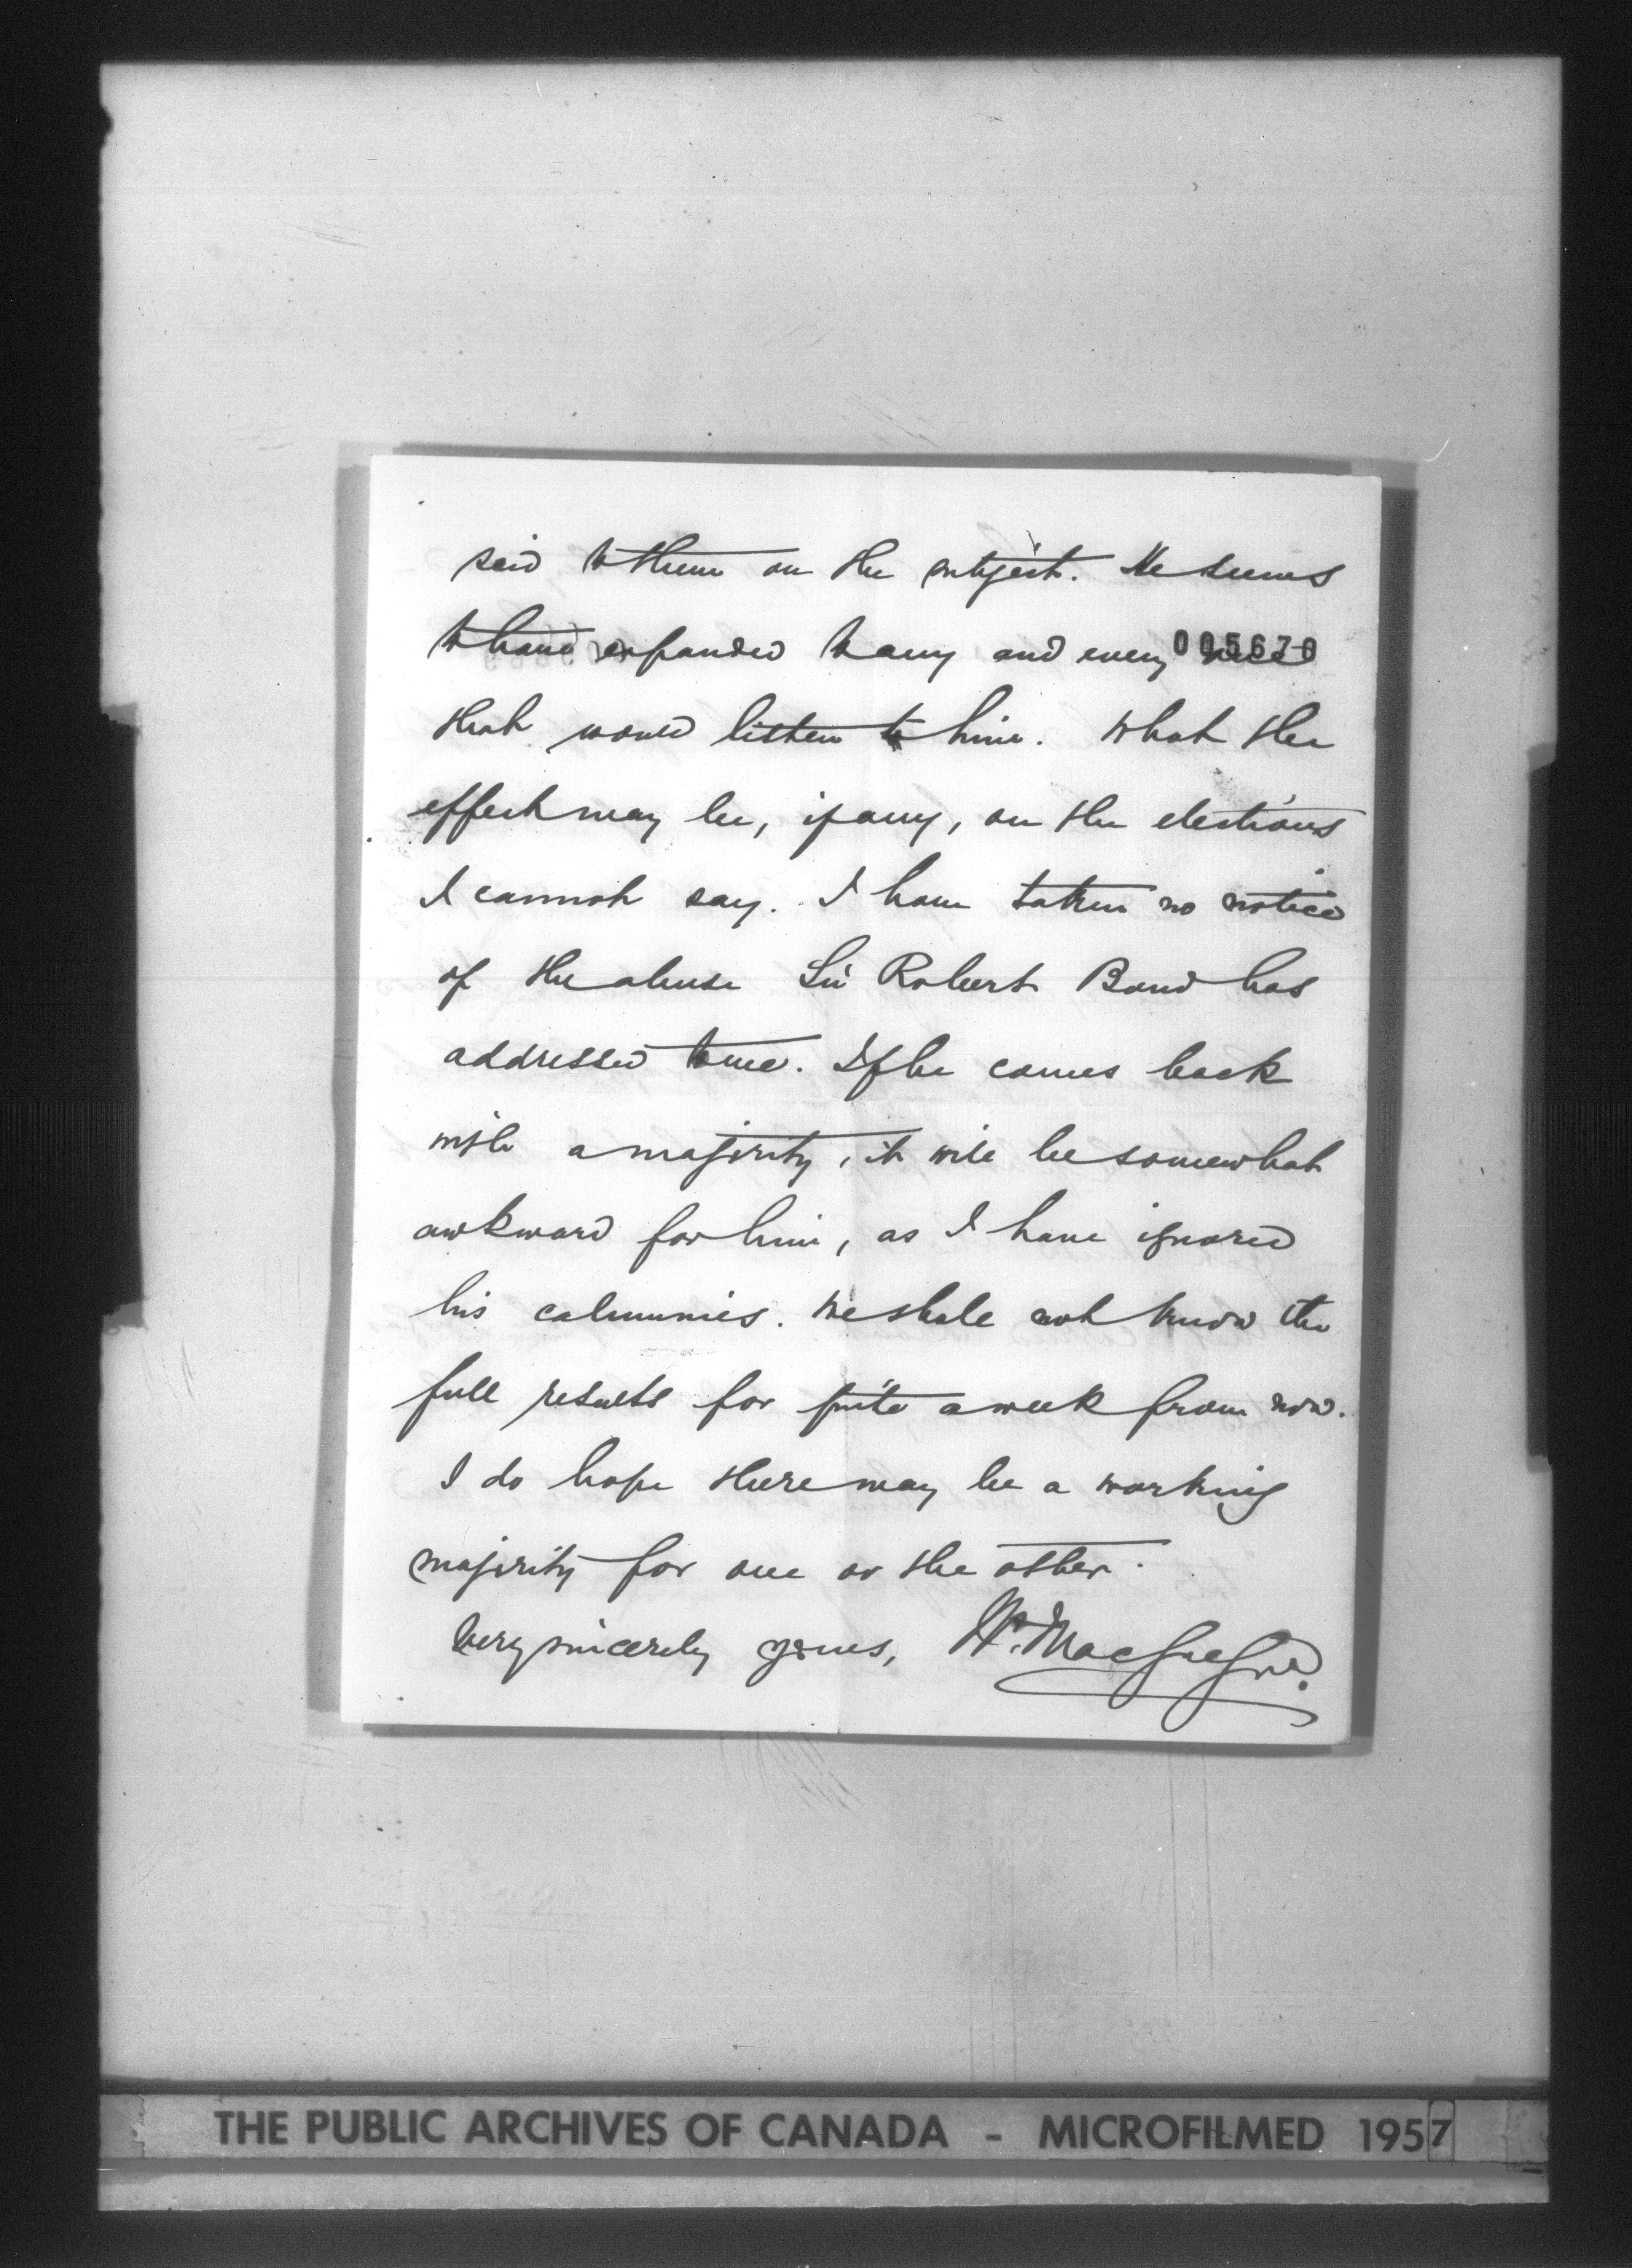 said to them on the subject. He seems
to have expanded to any and every
005670
that would listen to him. What the
effect may be, if any, on the elections
I cannot say. I have taken no notice
of the abuse Sir Robert Bond has
addressed to me. If he comes back
with a majority, it will be somewhat
awkward for him, as I have ignored
his calumnies. We shall not know the
full results for quite a week from now.
I do hope there may be a working
majority for one or the other.
Very sincerely yours, Wm. MacGregor.
THE PUBLIC ARCHIVES OF CANADA - MICROFILMED 1957